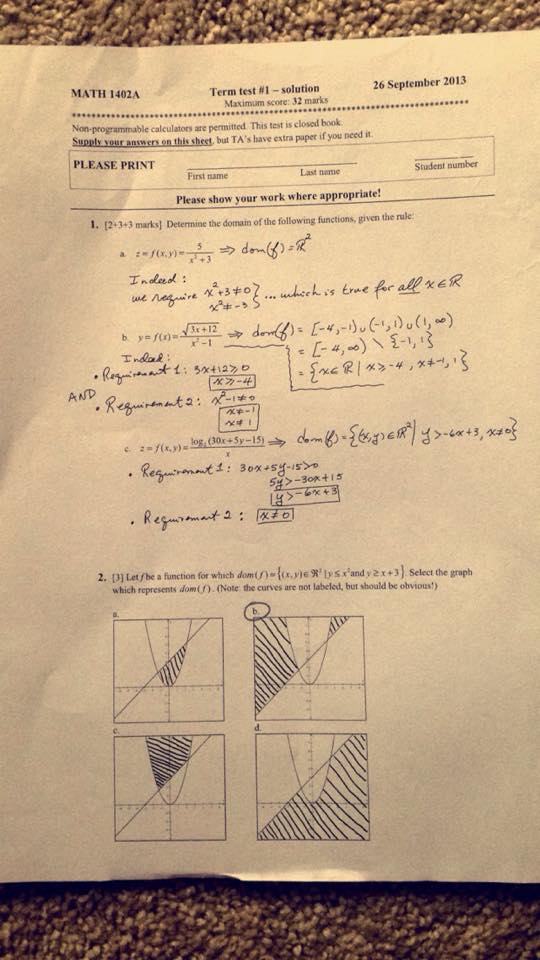 MATH 1402A
Term test #1 – solution
26 September 2013
Maximum score: 32 marks
Non-programmable calculators are permitted. This test is closed book.
Supply your answers on this sheet, but TA's have extra paper if you need it.
PLEASE PRINT
First name
Last name
Student number
Please show your work where appropriate!
1. [2+3+3 marks] Determine the domain of the following functions, given the rule:
a. z = f(x,y) = 5/(x²+3) ⇒ dom(f) = ℝ²
Indeed:
we require x²+3≠0 } ... which is true for all x∈ℝ
x²≠-3
b. y = f(x) = √(3x+12)/(x²−1) ⇒ dom(f) = [-4,-1)∪(-1,1)∪(1,∞)
= [-4,∞) \ {-1,1}
Indeed:
= {x∈ℝ | x≥-4, x≠-1,1}
• Requirement 1: 3x+12≥0
x≥-4
AND
• Requirement 2: x²-1≠0
x≠-1
x≠1
c. z = f(x,y) = log₂(30x+5y−15)/x ⇒ dom(f)={(x,y)∈ℝ² | y>-6x+3, x≠0}
• Requirement 1: 30x+5y-15>0
5y>-30x+15
y>-6x+3
• Requirement 2: x≠0
2. [3] Let f be a function for which dom(f)={(x,y)∈ℜ² | y≤x² and y≥x+3}. Select the graph
which represents dom(f). (Note: the curves are not labeled, but should be obvious!)
a.
b.
c.
d.